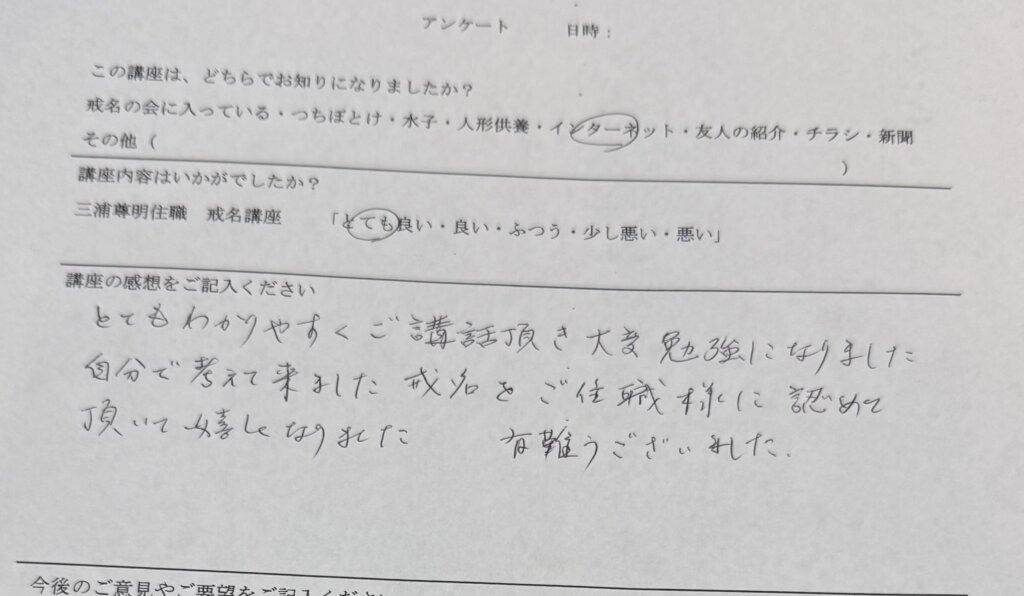 アンケート　日時：
この講座は、どちらでお知りになりましたか？
戒名の会に入っている・つちぼとけ・水子・人形供養・インターネット・友人の紹介・チラシ・新聞
その他（　）
講座内容はいかがでしたか？
三浦尊明住職　戒名講座　「とても良い・良い・ふつう・少し悪い・悪い」
講座の感想をご記入ください
とてもわかりやすくご講話頂き大変勉強になりました
自分で考えて来ました戒名をご住職様に認めて
頂いて嬉しくなりました　有難うございました.
今後のご意見やご要望をご記入くださ